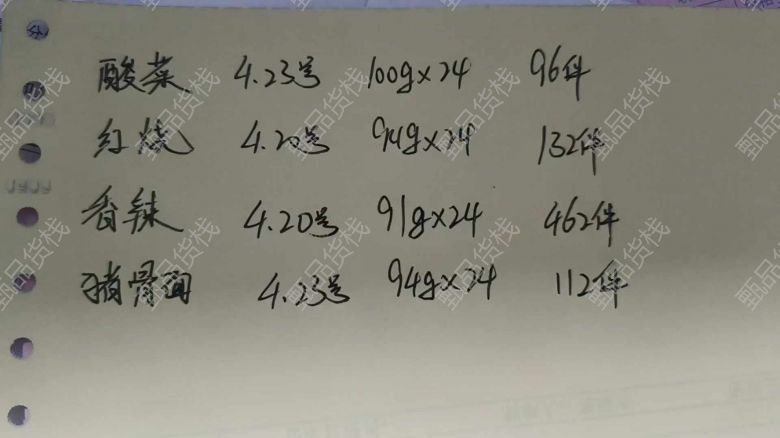 酸菜 4.23号 100g×24 96件
红烧 4.20号 94g×24 132件
香辣 4.20号 91g×24 462件
猪骨面 4.23号 94g×24 112件
甄品货栈
甄品货栈
甄品货栈
甄品货栈
甄品货栈
甄品货栈
甄品货栈
甄品货栈
甄品货栈
甄品货栈
甄品货栈
甄品货栈